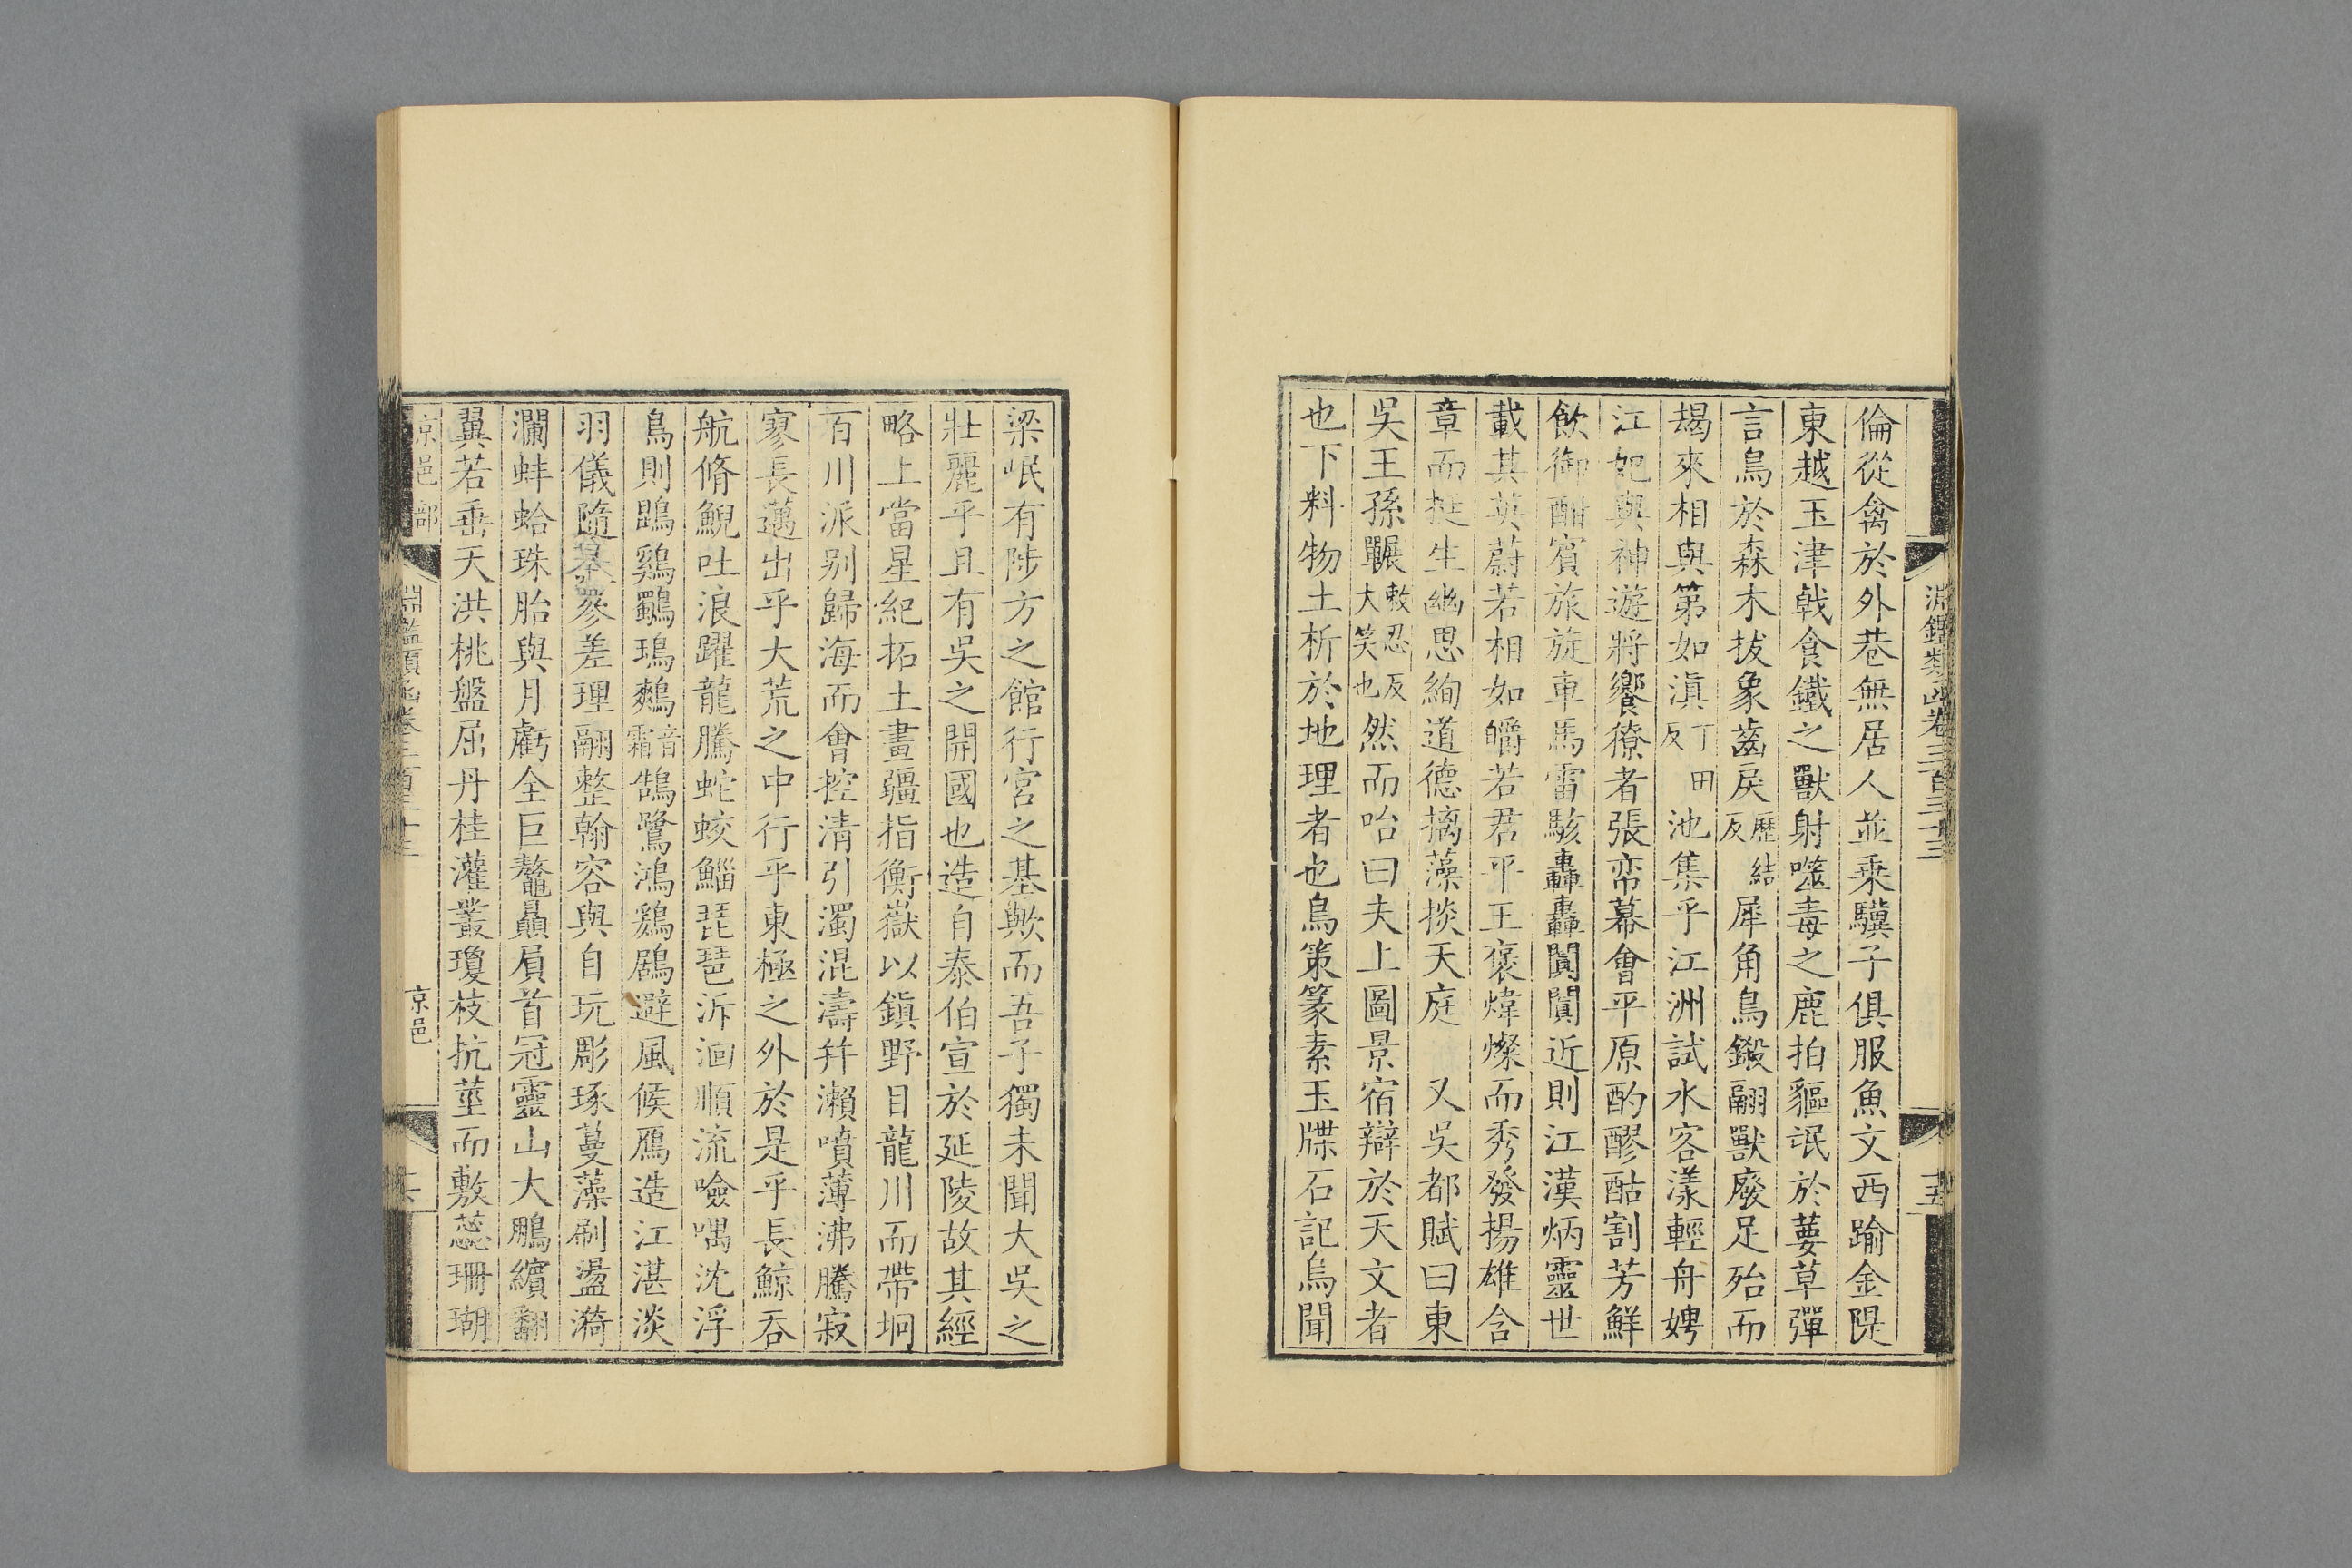 淵鑑類函卷三百三十三 十五
倫從禽於外巷無居人並乘驥子俱服魚文西踰金隄
東越玉津戟食鐵之獸射噬毒之鹿拍貙氓於葽草彈
言鳥於森木拔象齒戾歷結反犀角鳥鎩翮獸廢足殆而
朅來相與第如滇丁田反池集乎江洲試水客漾輕舟娉
江妃與神遊將饗獠者張帟幕會平原酌醪酤割芳鮮
飲御酣賓旅旋車馬雷駭轟轟闐闐近則江漢炳靈世
載其英蔚若相如皭若君平王褒煒燦而秀發揚雄含
章而挺生幽思絢道德摛藻掞天庭 又吳都賦曰東
吳王孫囅敕忍反大笑也然而咍曰夫上圖景宿辯於天文者
也下料物土析於地理者也鳥策篆素玉牒石記烏聞
梁岷有陟方之館行宮之基歟而吾子獨未聞大吳之
壯麗乎且有吳之開國也造自泰伯宣於延陵故其經
略上當星紀拓土畫疆指衡嶽以鎮野目龍川而帶坰
百川派别歸海而會控清引濁混濤并瀨噴薄沸騰寂
寥長邁出乎大荒之中行乎東極之外於是乎長鯨吞
航脩鯢吐浪躍龍騰蛇蛟鯔琵琶泝洄順流噞喁沈浮
鳥則鵾鷄鸀瑦鷞音霜鵠鷺鴻鷄鶢避風候鴈造江湛淡
羽儀隨綦參差理翮整翰容與自玩彫琢蔓藻刷盪漪
瀾蚌蛤珠胎與月虧全巨鼇贔屓首冠靈山大鵬繽翻
翼若垂天洪桃盤屈丹桂灌叢瓊枝抗莖而敷蕊珊瑚
京邑部 淵鑑類函卷三百三十三 京邑